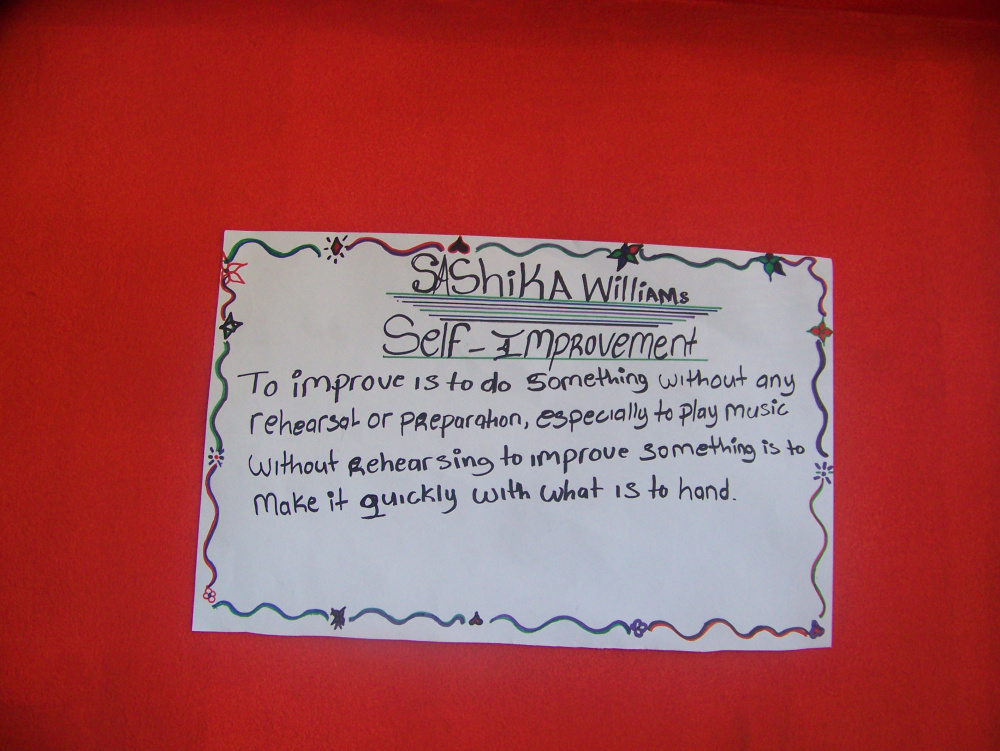 SAShiKA Williams
Self-Improvement
To improve is to do something without any
rehearsal or preparation, especially to play music
without rehearsing to improve something is to
Make it quickly with what is to hand.